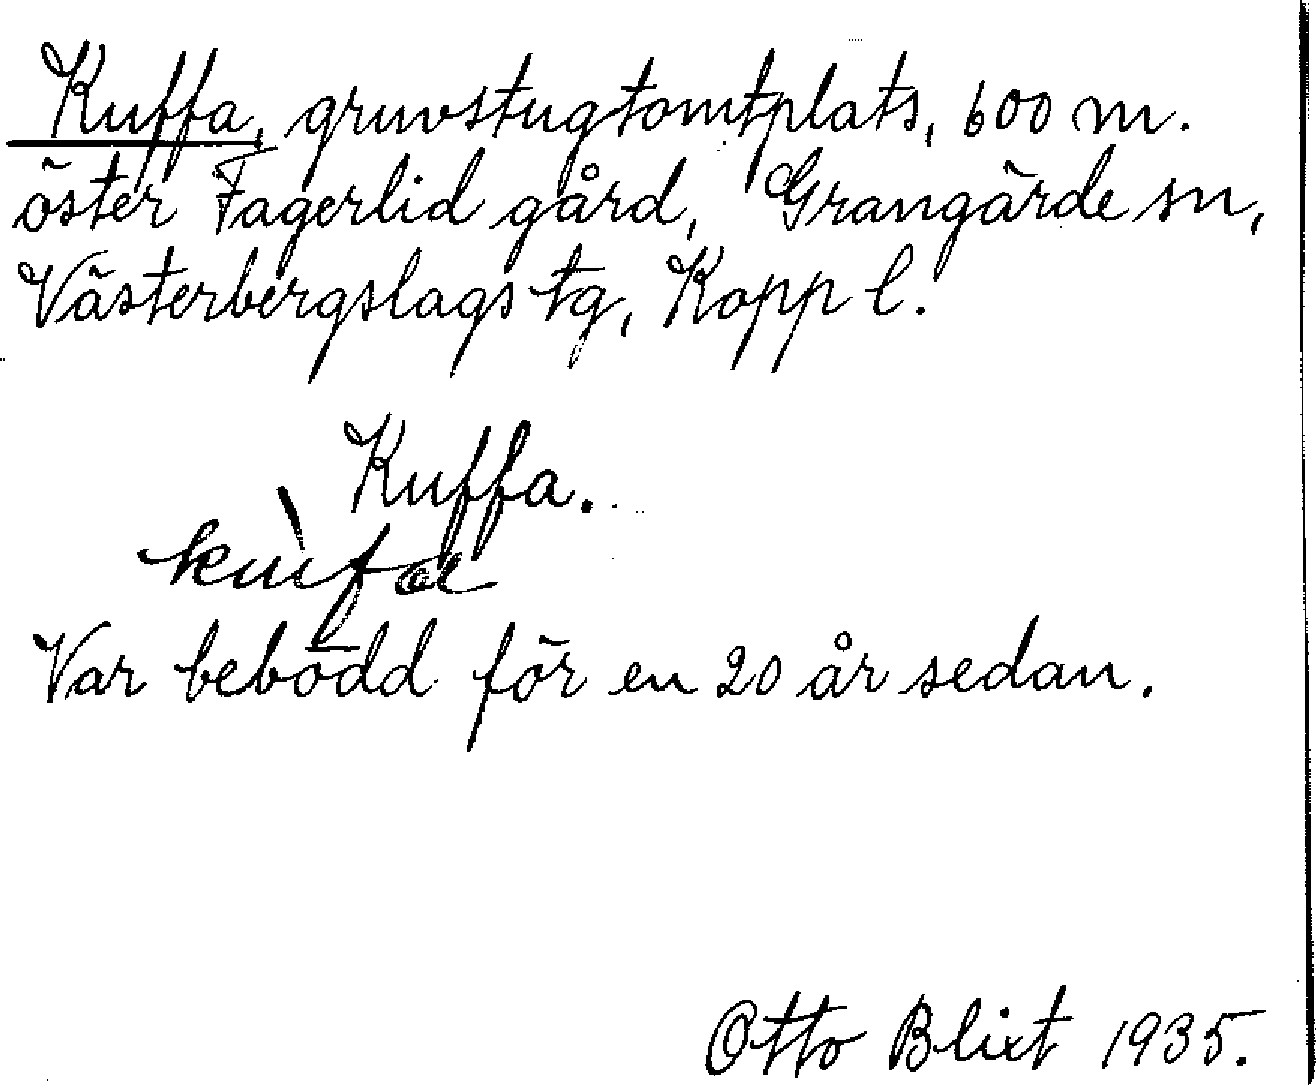 Kuffa, gruvstugtomtplats, 600 m.
öster Fagerlid gård, Grangärde sn,
Västerbergslags tg, Kopp l.
Kuffa.
kùfa
Var bebodd för en 20 år sedan.
Otto Blixt 1935.